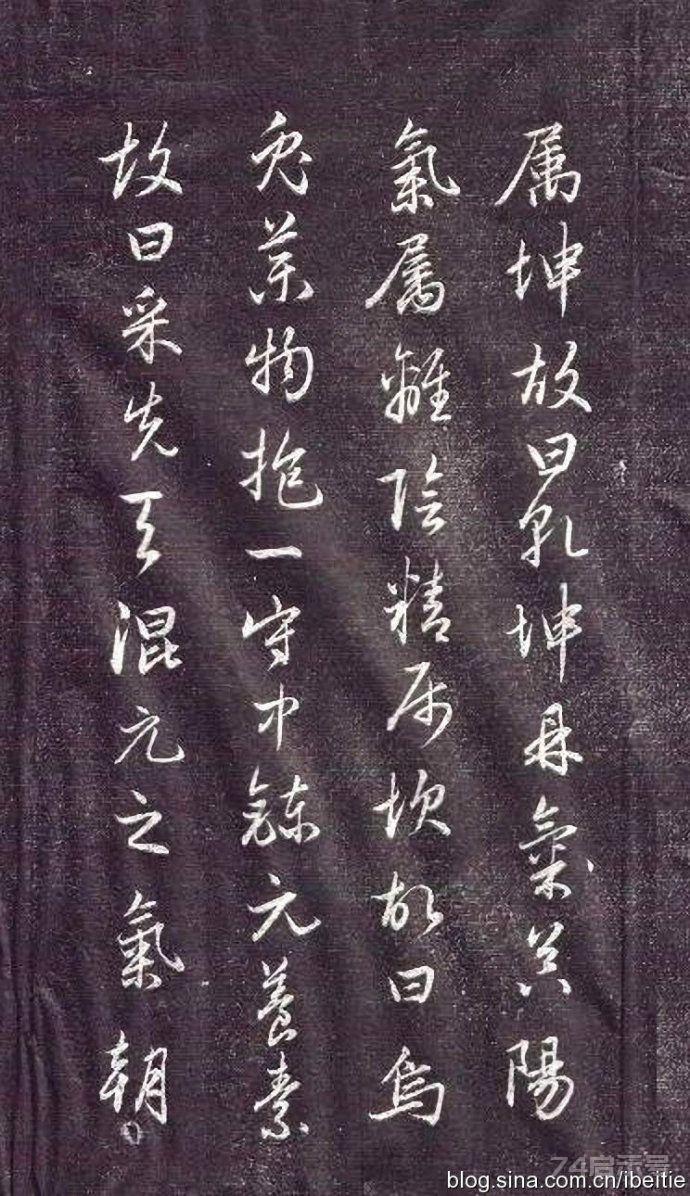 属坤故曰乾坤鼎器其陽
氣属離陰精属坎故曰烏
兔藥物抱一守中鍊元養素
故曰采先天混元之氣朝
blog.sina.com.cn/ibeitie
74启示录